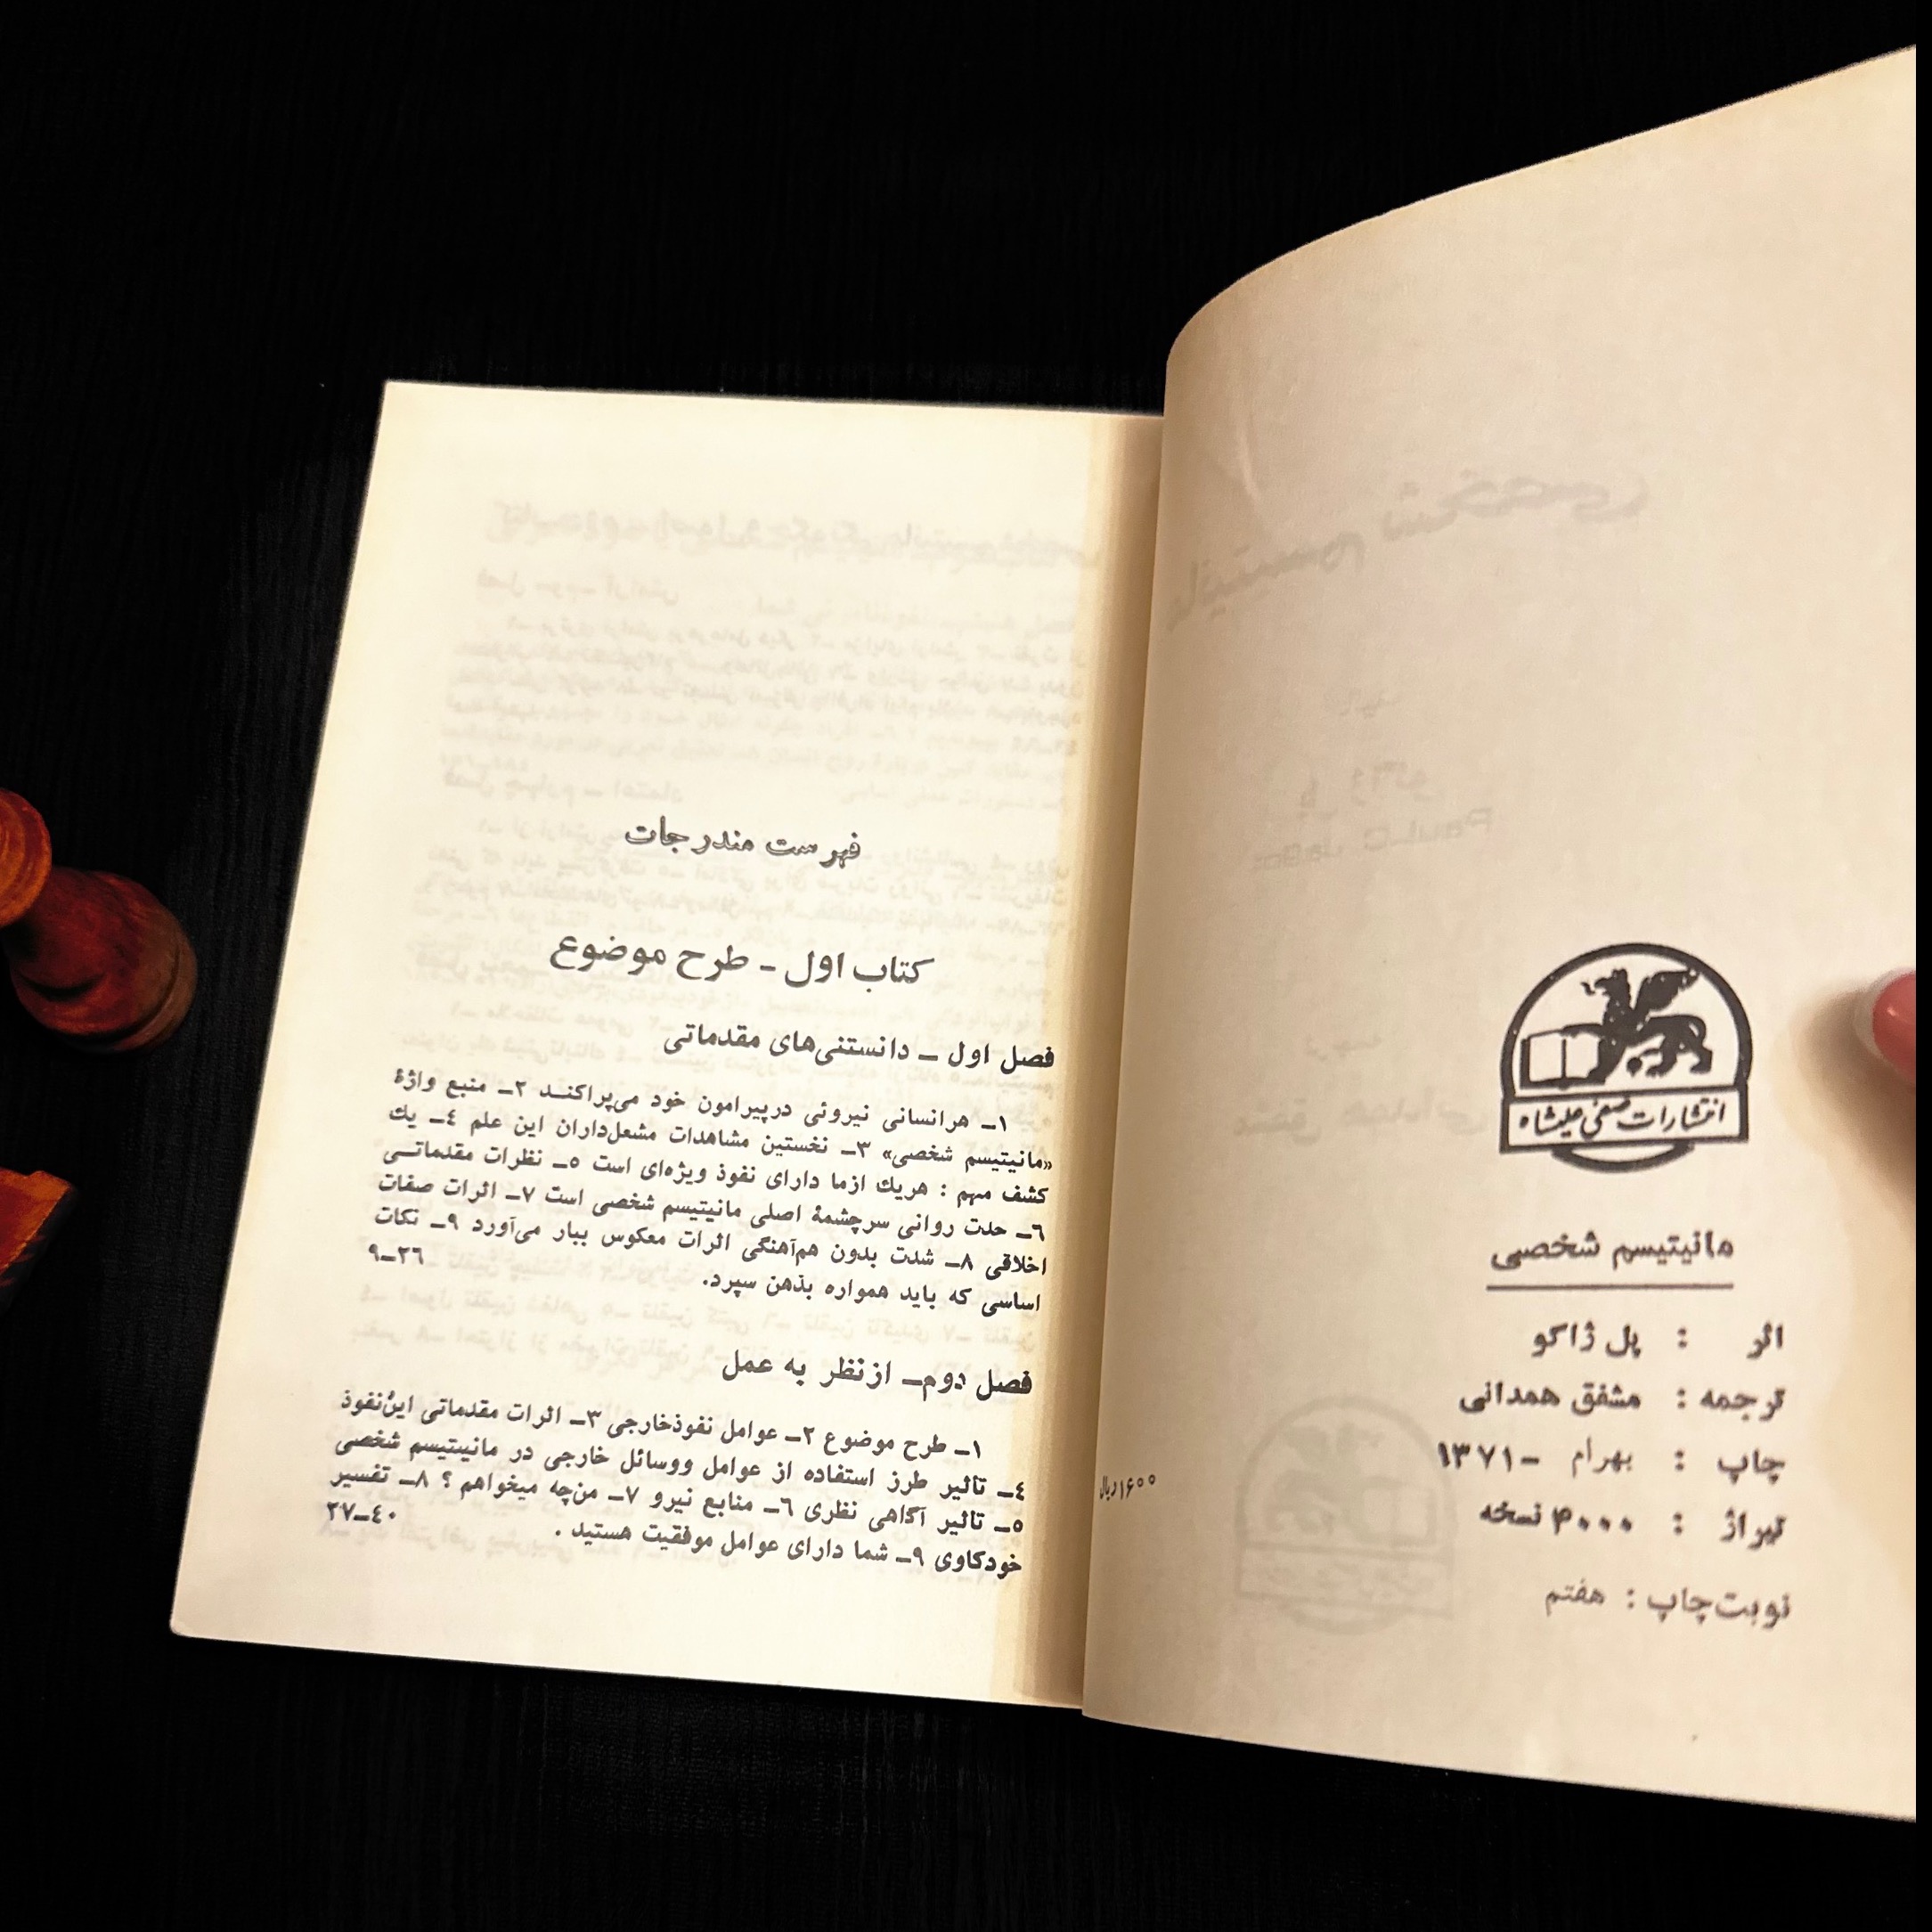 انتشارات صفی علیشاه
مانیتیسم شخصی
اثر : پل ژاگو
ترجمه : مشفق همدانی
چاپ : بهرام - ۱۳۷۱
تیراژ : ۴۰۰۰ نسخه
نوبت چاپ : هفتم
۱۶۰۰ ریال
فهرست مندرجات
کتاب اول - طرح موضوع
فصل اول - دانستنی‌های مقدماتی
۱- هر انسانی نیروئی درپیرامون خود می‌پراکنـد ۲- منبع واژهٔ
«مانیتیسم شخصی» ۳- نخستین مشاهدات مشعل‌داران این علم ٤- یك
کشف مهم : هریك ازما دارای نفوذ ویژه‌ای است ٥- نظرات مقدماتـی
٦- حدت روانی سرچشمهٔ اصلی مانیتیسم شخصی است ۷- اثرات صفات
اخلاقی ۸- شدت بدون هم‌آهنگی اثرات معکوس ببار می‌آورد ۹- نکات
اساسی که باید همواره بذهن سپرد. ۲٦-۹
فصل دوم- ازنظر به عمل
۱- طرح موضوع ۲- عوامل نفوذخارجی ۳- اثرات مقدماتی این‌نفوذ
٤- تاثیر طرز استفاده از عوامل ووسائل خارجی در مانیتیسم شخصی
٥- تاثیر آگاهی نظری ٦- منابع نیرو ۷- من‌چه میخواهم ؟ ۸- تفسیر
خودکاوی ۹- شما دارای عوامل موفقیت هستید . ٤۰-۲۷